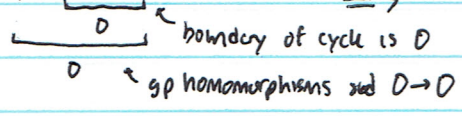 0
boundary of cycle is 0
0
gp homomorphisms send 0→0